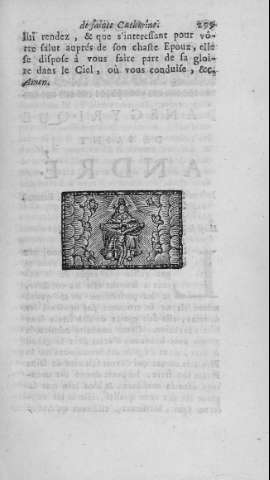 de sainte Catherine. 299
lui rendez, & que s'interessant pour vô-
tre salut auprés de son chaste Epoux, elle
se dispose à vous faire part de sa gloi-
re dans le Ciel, où vous conduise, &c.
Amen.